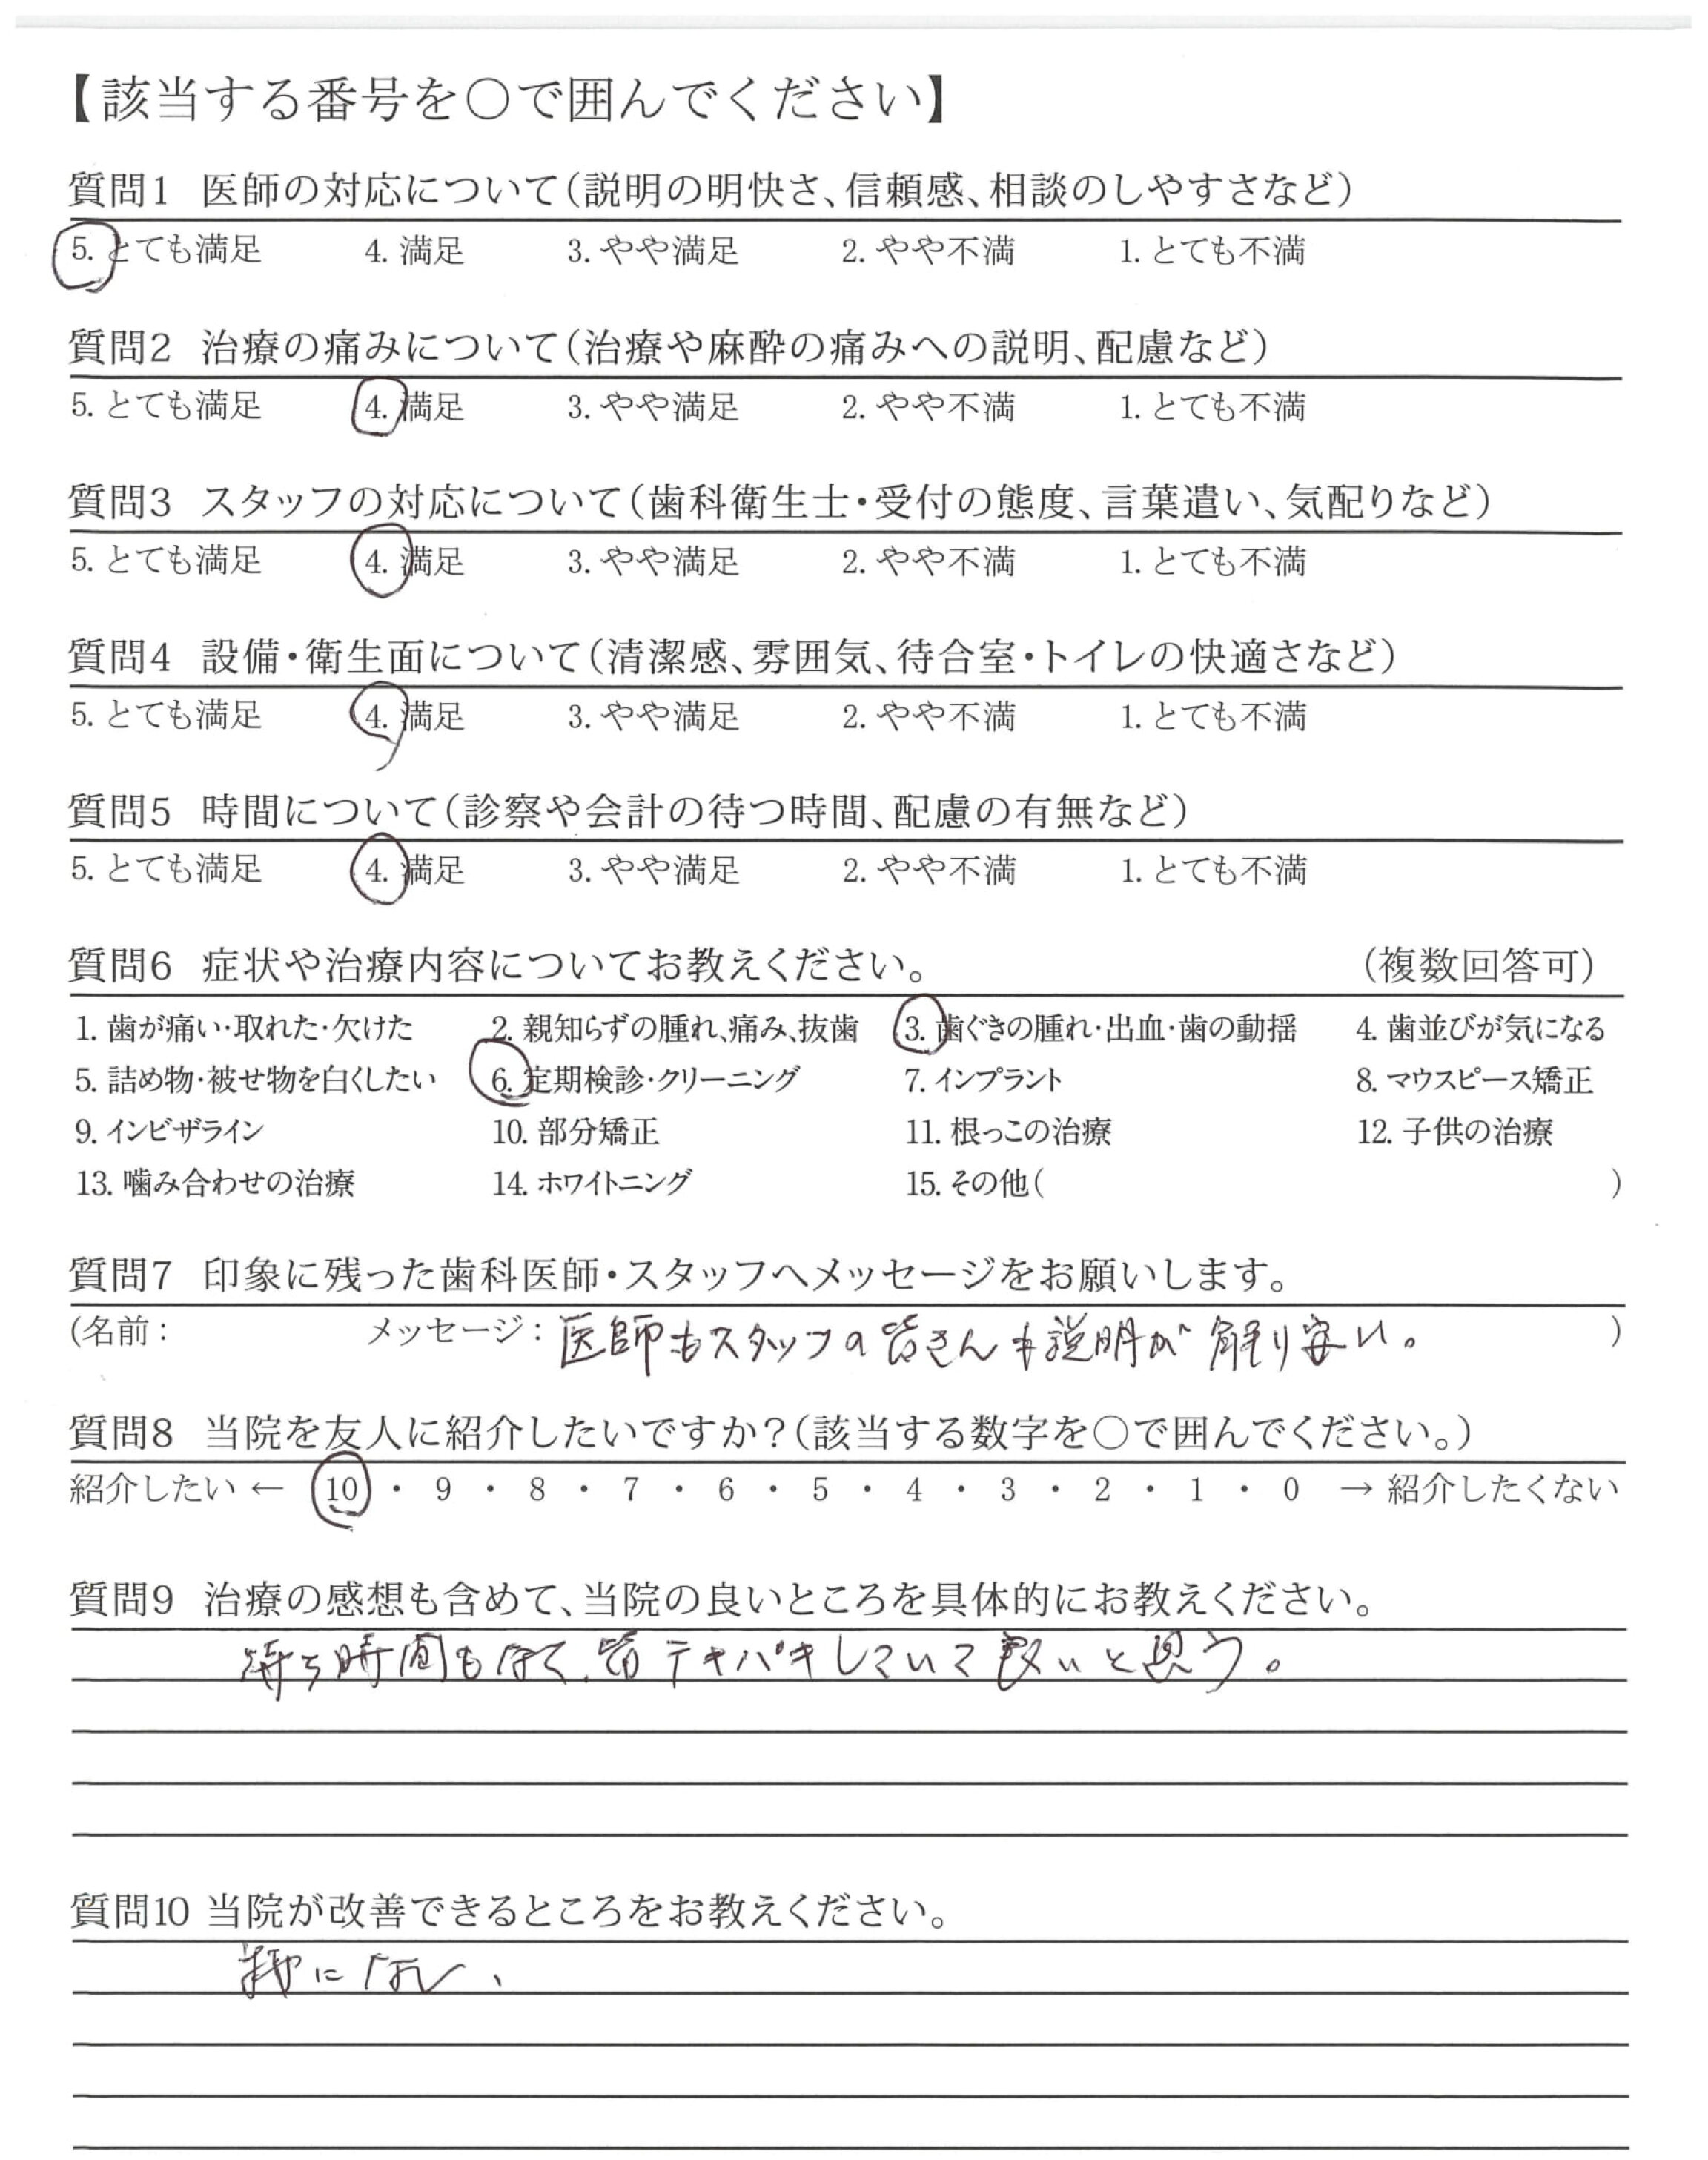 【該当する番号を○で囲んでください】
質問1 医師の対応について(説明の明快さ、信頼感、相談のしやすさなど)
5. とても満足 4. 満足 3. やや満足 2. やや不満 1. とても不満
質問2 治療の痛みについて(治療や麻酔の痛みへの説明、配慮など)
5. とても満足 4. 満足 3. やや満足 2. やや不満 1. とても不満
質問3 スタッフの対応について(歯科衛生士・受付の態度、言葉遣い、気配りなど)
5. とても満足 4. 満足 3. やや満足 2. やや不満 1. とても不満
質問4 設備・衛生面について(清潔感、雰囲気、待合室・トイレの快適さなど)
5. とても満足 4. 満足 3. やや満足 2. やや不満 1. とても不満
質問5 時間について(診察や会計の待つ時間、配慮の有無など)
5. とても満足 4. 満足 3. やや満足 2. やや不満 1. とても不満
質問6 症状や治療内容についてお教えください。 (複数回答可)
1. 歯が痛い・取れた・欠けた 2. 親知らずの腫れ、痛み、抜歯 3. 歯ぐきの腫れ・出血・歯の動揺 4. 歯並びが気になる
5. 詰め物・被せ物を白くしたい 6. 定期検診・クリーニング 7. インプラント 8. マウスピース矯正
9. インビザライン 10. 部分矯正 11. 根っこの治療 12. 子供の治療
13. 噛み合わせの治療 14. ホワイトニング 15. その他( )
質問7 印象に残った歯科医師・スタッフへメッセージをお願いします。
(名前: メッセージ: 医師もスタッフの皆さんも説明が解り安い。 )
質問8 当院を友人に紹介したいですか?(該当する数字を○で囲んでください。)
紹介したい ← 10 ・ 9 ・ 8 ・ 7 ・ 6 ・ 5 ・ 4 ・ 3 ・ 2 ・ 1 ・ 0 → 紹介したくない
質問9 治療の感想も含めて、当院の良いところを具体的にお教えください。
待ち時間もなく、皆テキパキしていて良いと思う。
質問10 当院が改善できるところをお教えください。
特になし、